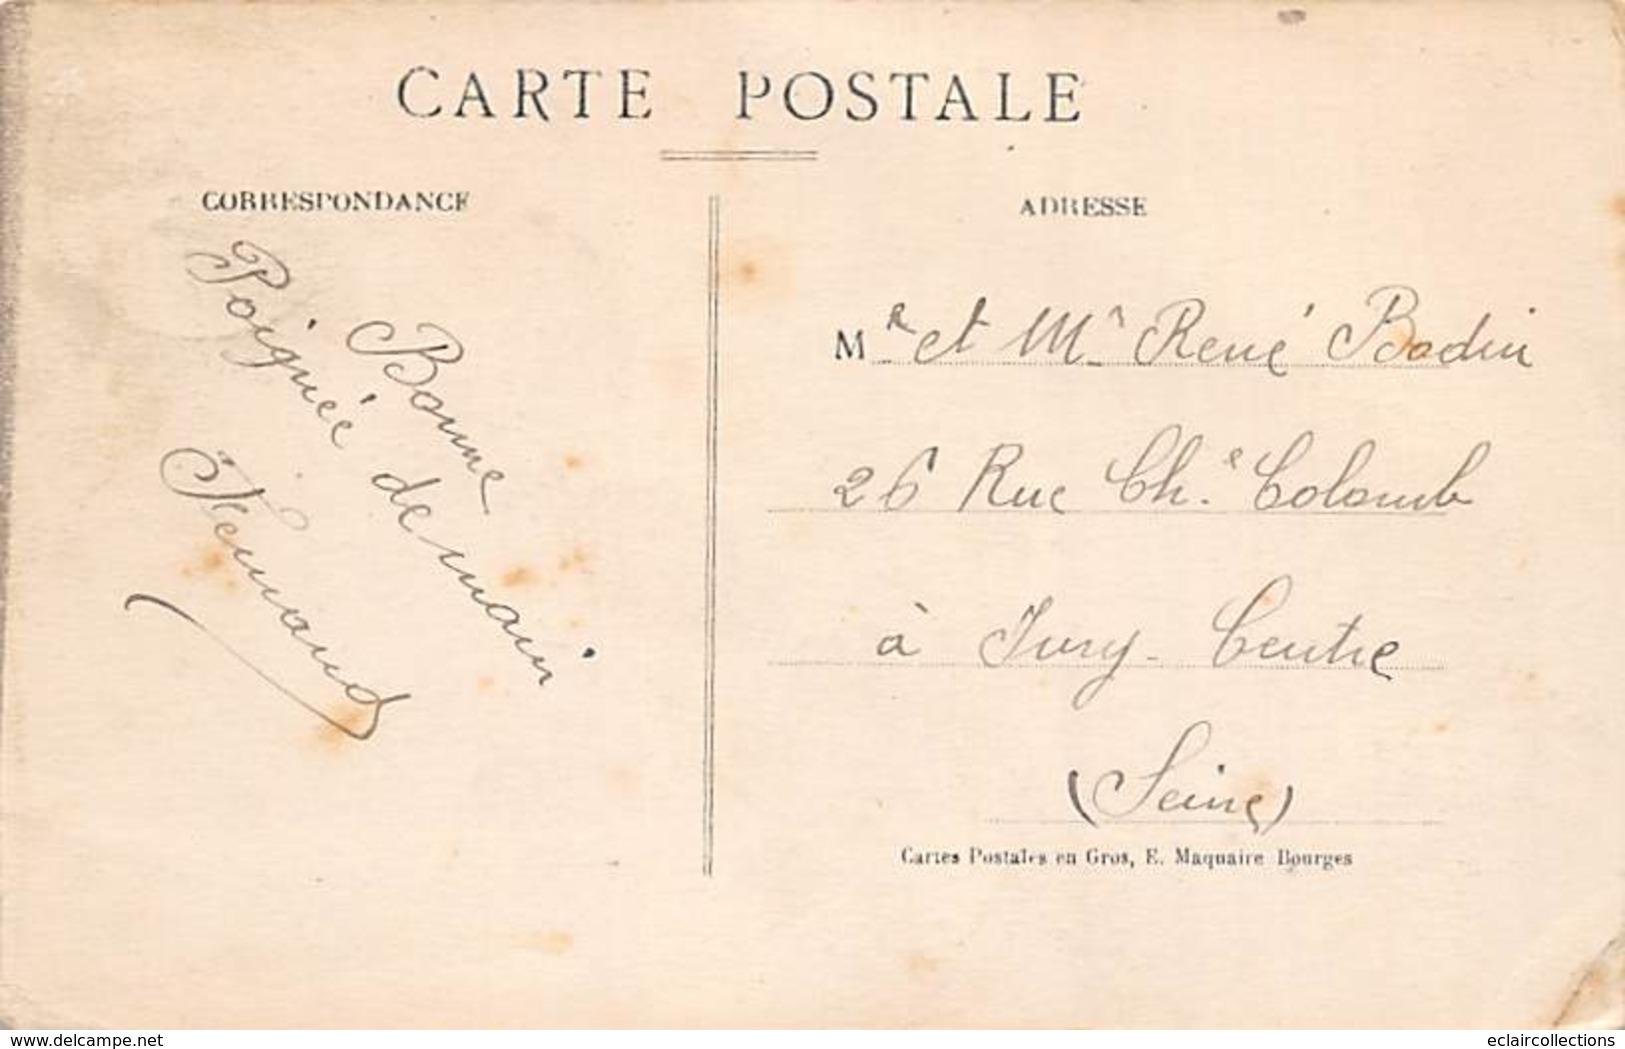 CARTE POSTALE
CORRESPONDANCE
ADRESSE
Bonne
Poignée de main
Fernand
Mr et Me René Bodin
26 Rue Che Colomb
à Ivry-Centre
(Seine)
Cartes Postales en Gros, E. Maquaire Bourges
www.delcampe.net
eclaircollections